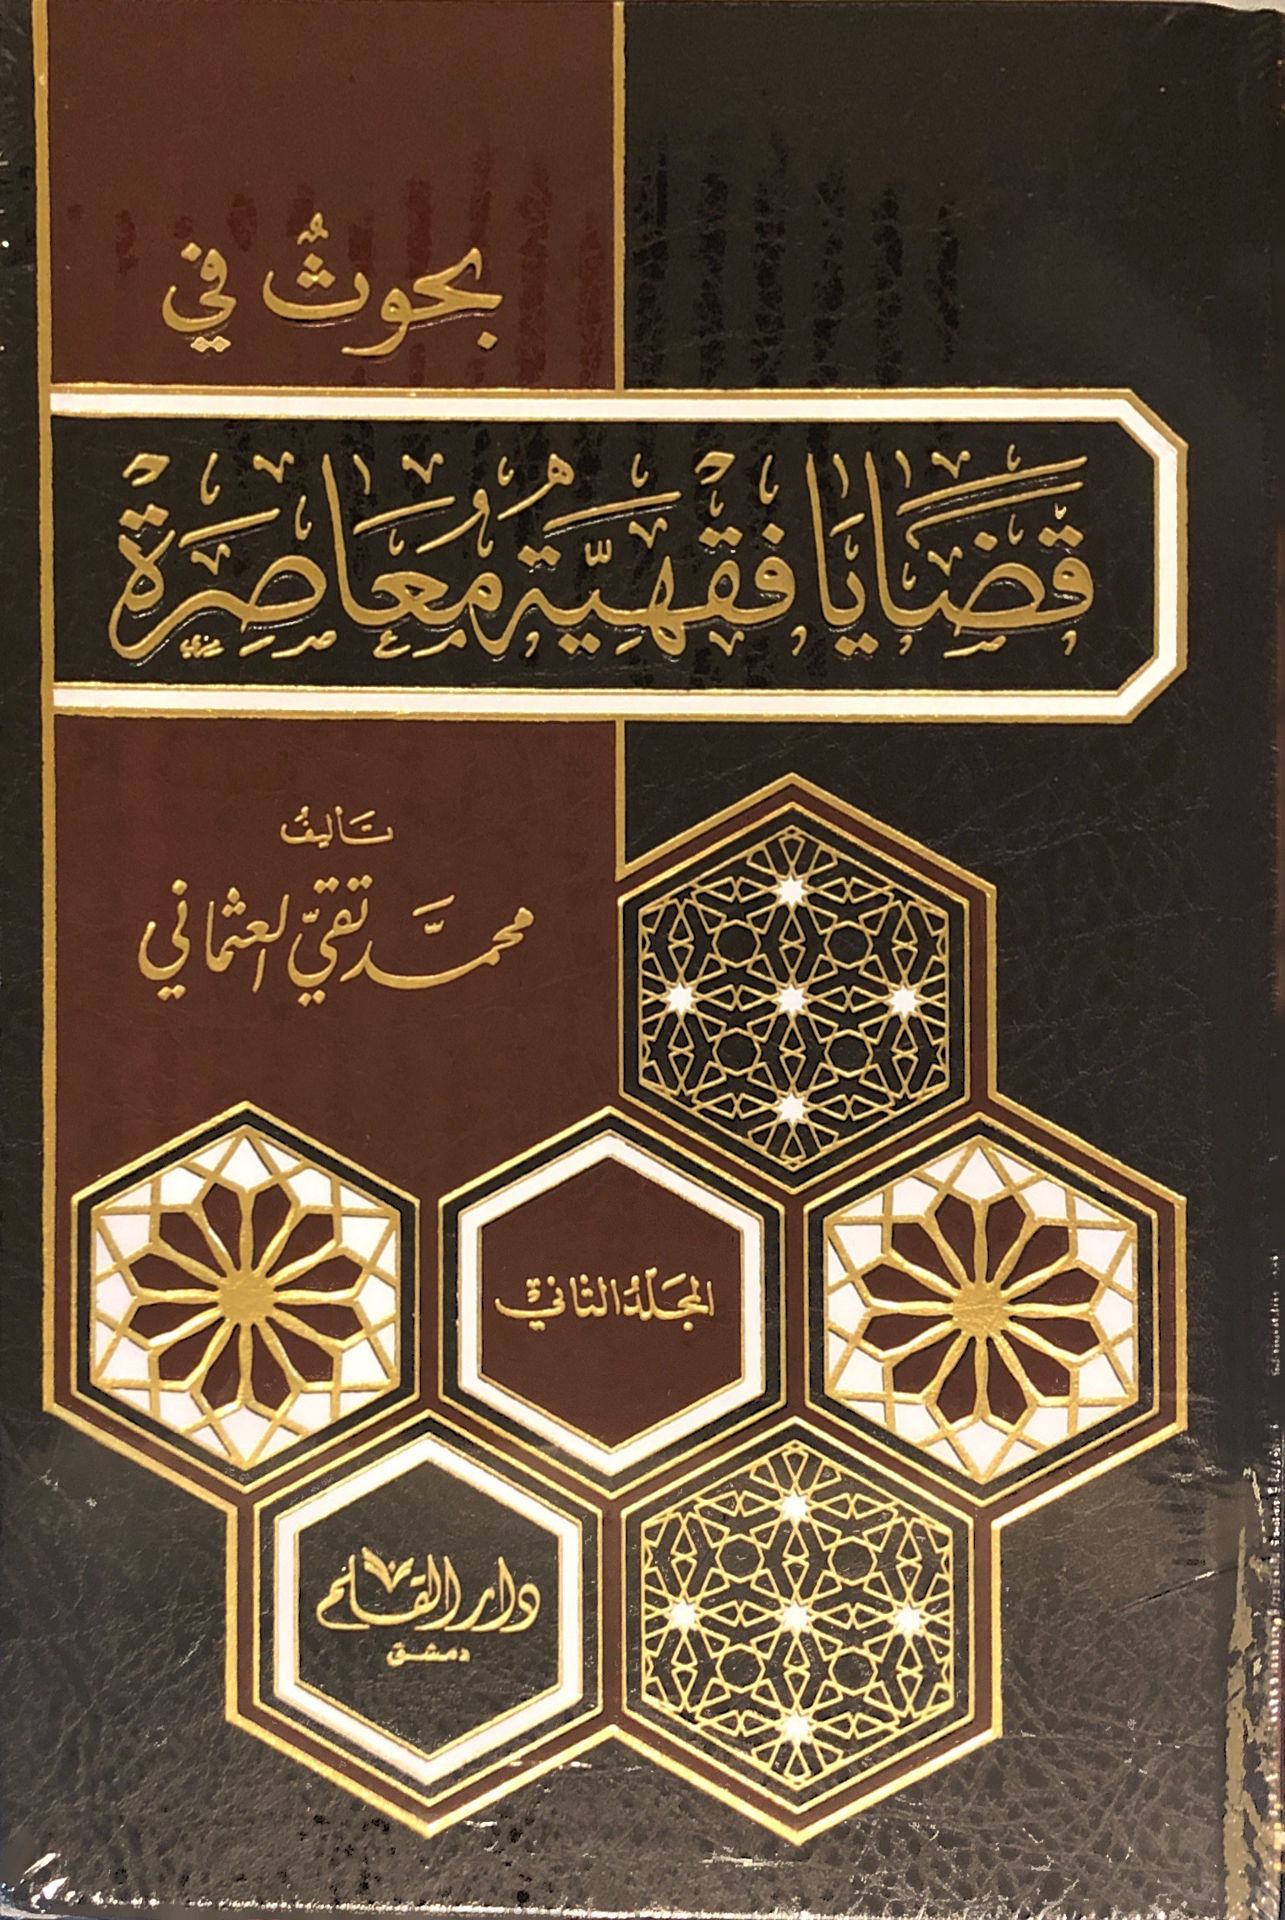 بحوثٌ في
قَضَايَا فِقْهِيَّة مُعَاصِرَة
تَأليفُ
محمَّد تقيّ العثماني
المجَلّد الثاني
دار القلم
دمشق